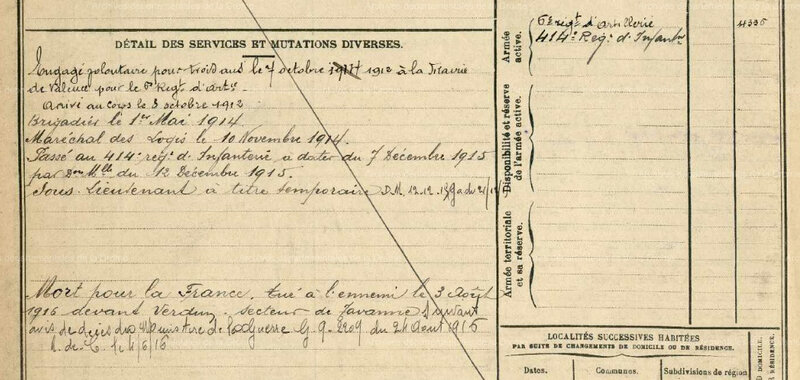 DÉTAIL DES SERVICES ET MUTATIONS DIVERSES.
Engagé volontaire pour trois ans le 7 octobre 1912 à la Mairie
de Valence pour le 6e Regt d'Arte.
Arrivé au corps le 8 octobre 1912
Brigadier le 1er Mai 1914.
Maréchal des Logis le 10 Novembre 1914.
Passé au 414e reg. d'Infanterie à dater du 7 Décembre 1915
par Don Mlle du 12 Décembre 1915.
Sous Lieutenant à titre temporaire D.M. 12.12.15
Mort pour la France. tué à l'ennemi le 3 Août
1916 devant Verdun Secteur de Tavanne Suivant
avis de décès du Ministre de la Guerre G. 9-2209 du 24 Août 1916
Armée
active.
6e regt d'artillerie
414e Reg. d'Infant
Disponibilité et réserve
de l'armée active.
Armée territoriale
et sa réserve.
LOCALITÉS SUCCESSIVES HABITÉES
PAR SUITE DE CHANGEMENTS DE DOMICILE OU DE RÉSIDENCE.
Dates.
Communes.
Subdivisions de région
DOMICILE
RÉSIDENCE.